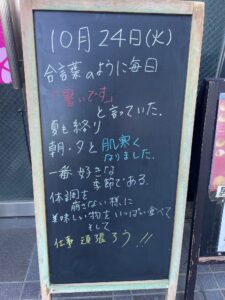 10月24日(火)
合言葉のように毎日
「暑いです」
と言っていた.
夏も終り
朝・夕と肌寒く
なりました.
一番好きな
季節である.
体調を
崩さない様に
美味しい物をいっぱい食べて
そして
仕事頑張ろう!!